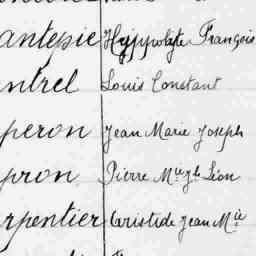 antepie Hyppolyte François
ntrel Louis Constant
peron Jean Marie Joseph
pron Pierre Léon
rpentier Aristide Jean Mie